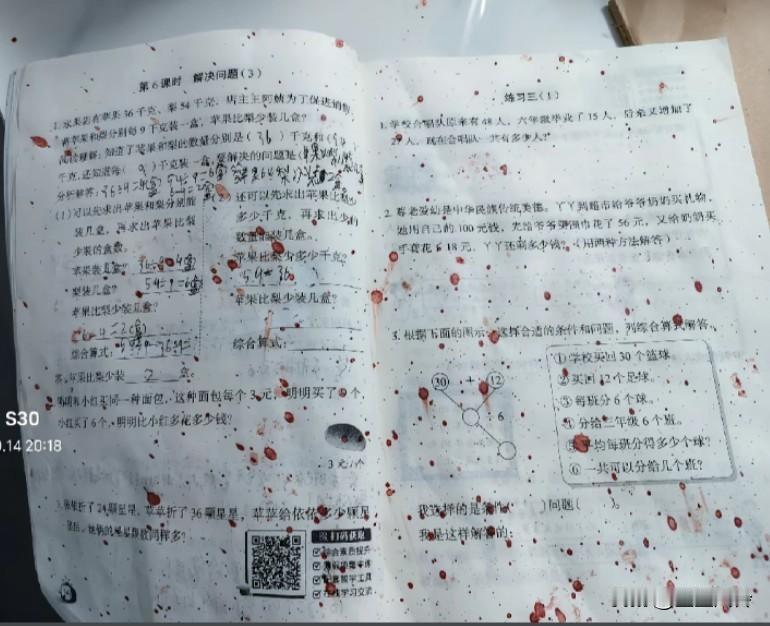 第6课时 解决问题(3)
1.水果店有苹果36千克、梨54千克,店主王阿姨为了促进销售,
将苹果和梨分别每9千克装一盒,苹果比梨少装几盒?
阅读理解:知道了苹果和梨的数量分别是(36)千克和(54)
千克,还知道每(9)千克装一盒,要解决的问题是(
分析解答:
(1)可以先求出苹果和梨分别能
装几盒,再求出苹果比梨
少装的盒数。
苹果装几盒?
梨装几盒? 54÷9=6(盒)
苹果比梨少装几盒?
6-4=2(盒)
综合算式:
(2)还可以先求出苹果比梨少
多少千克,再求出少的
数量能装几盒。
苹果比梨少多少千克?
54-36
苹果比梨少装几盒?
综合算式:
答:苹果比梨少装 2 盒。
明明和小红买同一种面包,这种面包每个3元,明明买了9个,
小红买了6个,明明比小红多花多少钱?
3元/个
折了24颗星星,苹苹折了36颗星星,苹苹给依依多少颗星
同样多?
扫码获取
学习交流
练习三(1)
1.学校合唱队原来有48人,六年级毕业了15人,后来又增加了
29人,现在合唱队一共有多少人?
2.尊老爱幼是中华民族传统美德。丫丫到超市给爷爷奶奶买礼物,
她用自己的100元钱,先给爷爷买围巾花了56元,又给奶奶买
手套花了18元,丫丫还剩多少钱?(用两种方法解答)
3.根据下面的图示,选择合适的条件和问题,列综合算式解答。
30 + 12
÷ 6
①学校买回30个篮球。
②买回12个足球。
③每班分6个球。
④分给二年级6个班。
⑤平均每班分得多少个球?
⑥一共可以分给几个班?
我选择的是条件( )问题( )。
我是这样解答的:
S30
.14 20:18